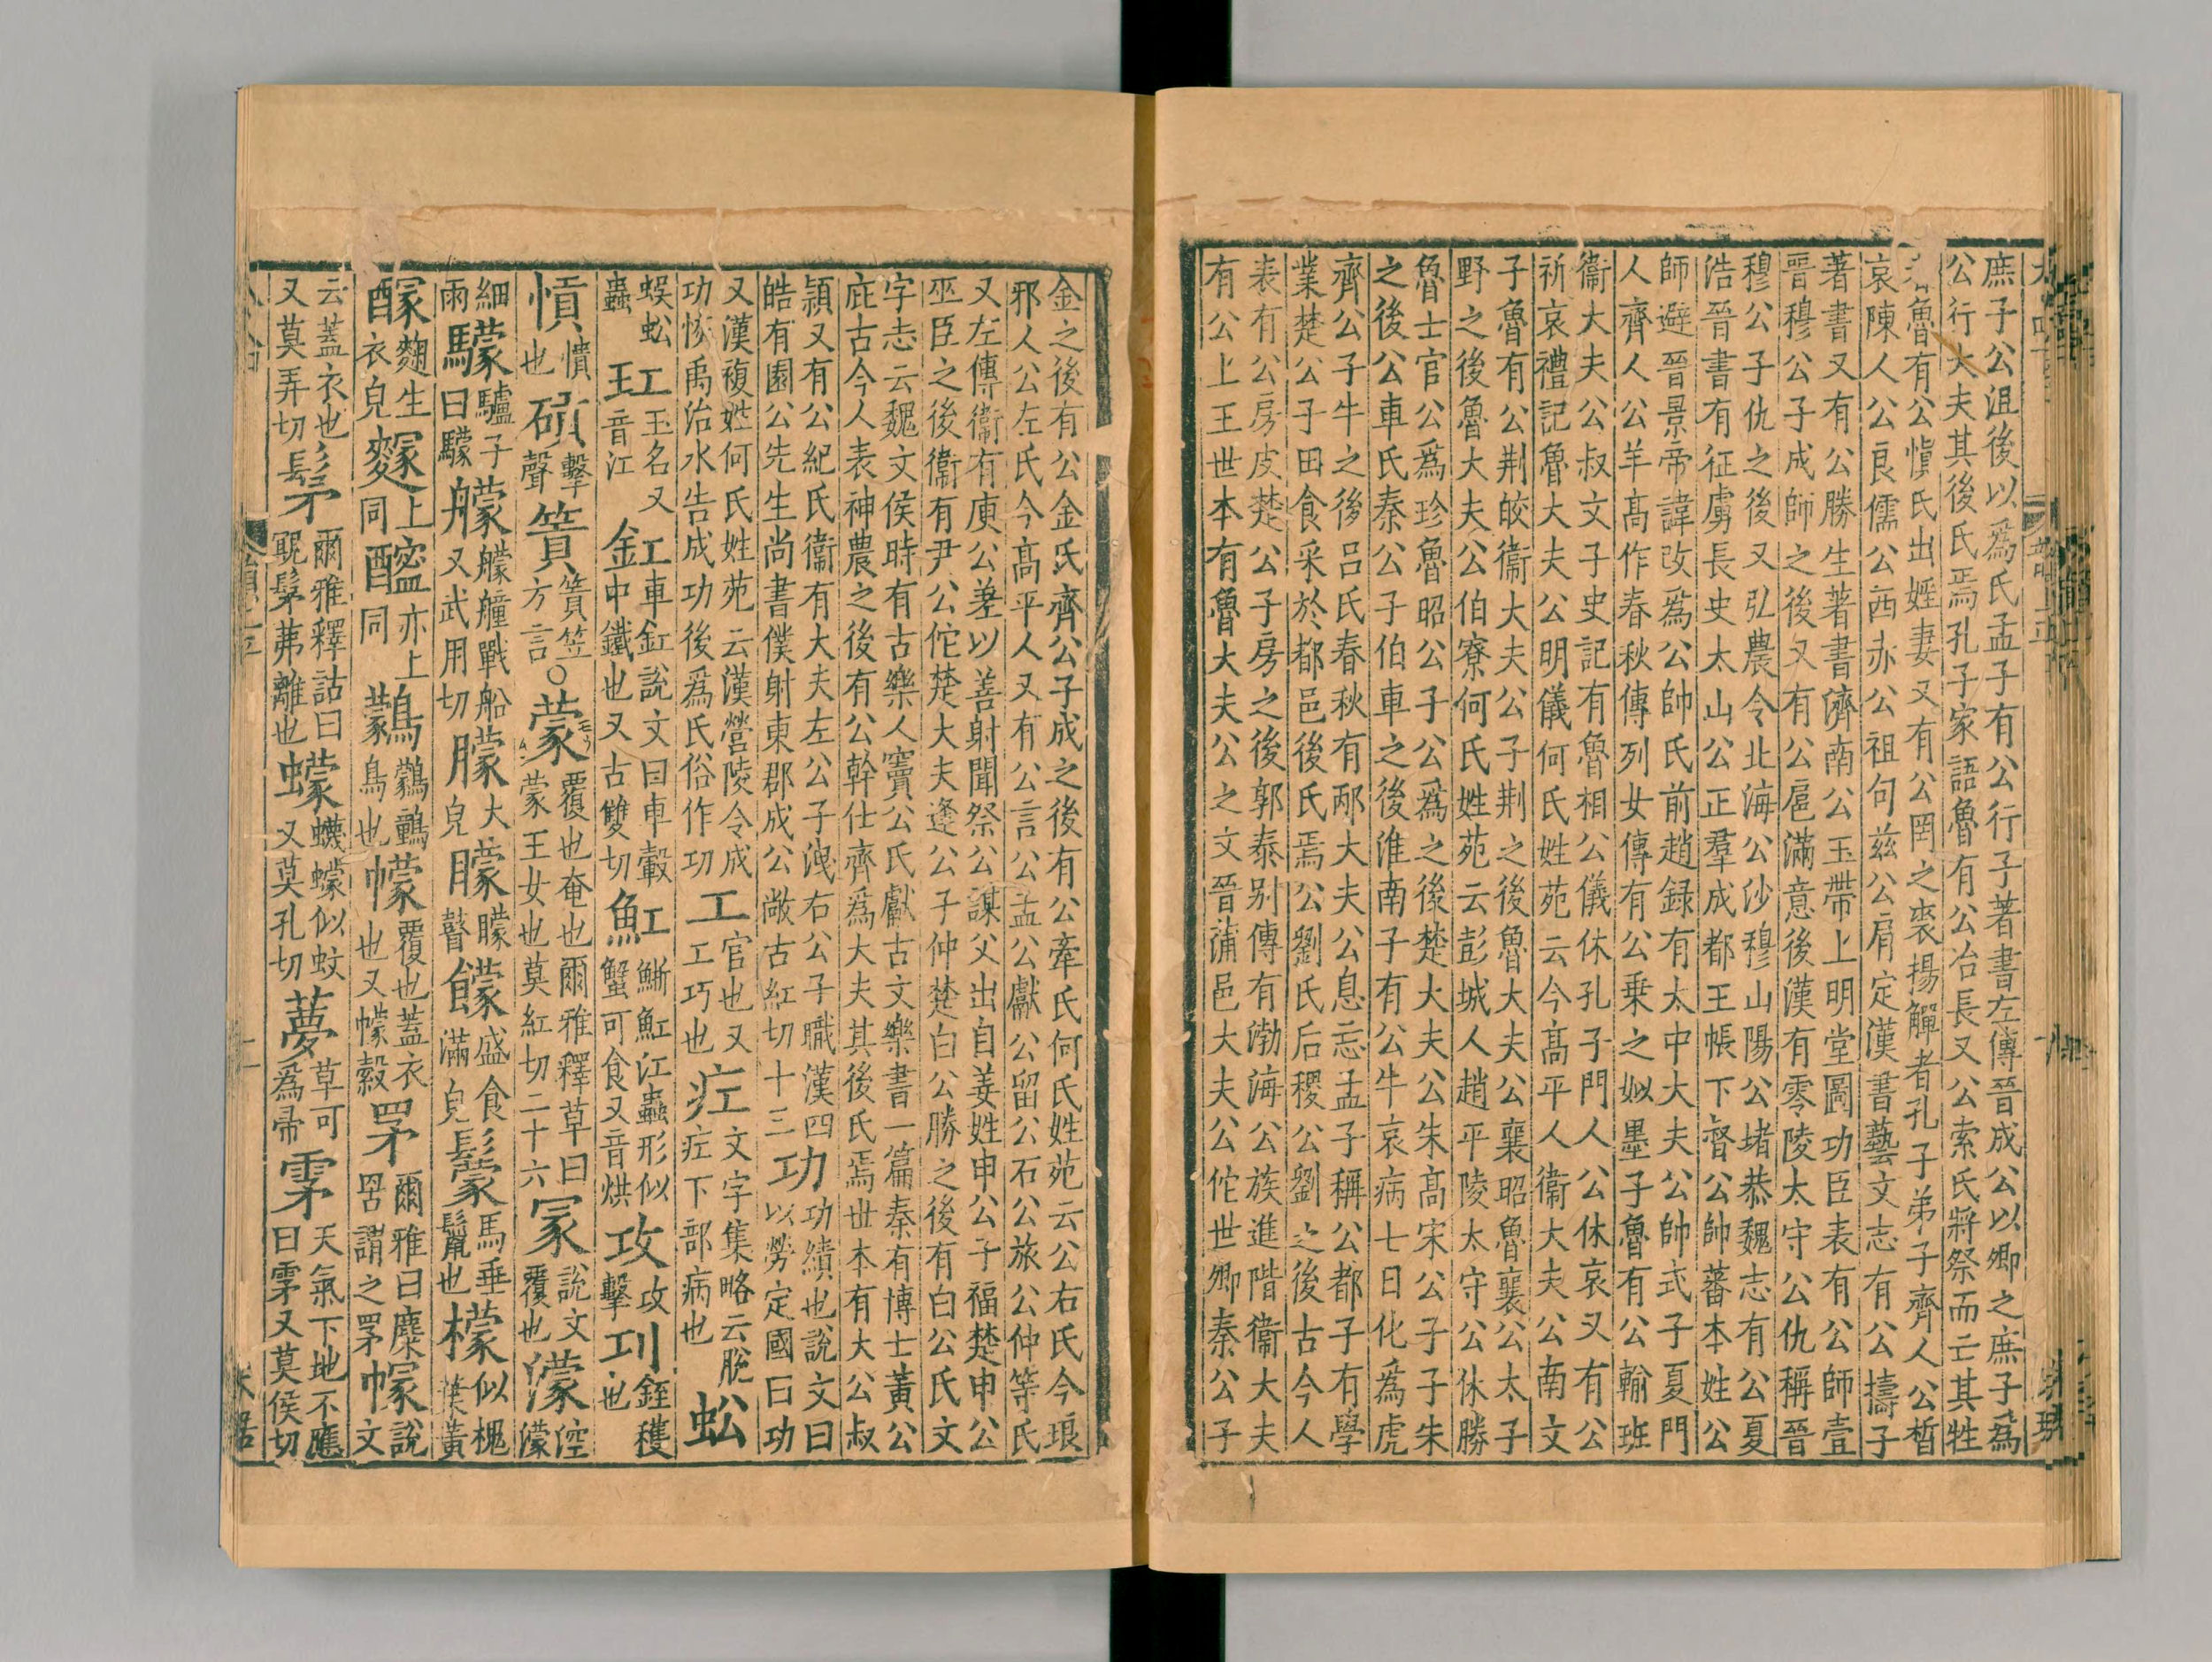 庶子公沮後以爲氏孟子有公行子著書左傳晉成公以卿之庶子爲
公行大夫其後氏焉孔子家語魯有公冶長又公索氏將祭而亡其牲
魯有公愼氏出婬妻又有公罔之裘揚觶者孔子弟子齊人公晳
哀陳人公良儒公西赤公祖句兹公肩定漢書藝文志有公檮子
著書又有公勝生著書濟南公玉帶上明堂圖功臣表有公師壹
晉穆公子成師之後又有公扈滿意後漢有零陵太守公仇稱晉
穆公子仇之後又弘農令北海公沙穆山陽公堵恭魏志有公夏
浩晉書有征虜長史太山公正羣成都王帳下督公帥蕃本姓公
師避晉景帝諱改爲公帥氏前趙録有太中大夫公帥式子夏門
人齊人公羊髙作春秋傳列女傳有公乗之姒墨子魯有公輸班
衞大夫公叔文子史記有魯相公儀休孔子門人公休哀又有公
祈哀禮記魯大夫公明儀何氏姓苑云今髙平人衞大夫公南文
子魯有公荆皎衞大夫公子荆之後魯大夫公襄昭魯襄公太子
野之後魯大夫公伯寮何氏姓苑云彭城人趙平陵太守公休勝
魯士官公爲珍魯昭公子公爲之後楚大夫公朱髙宋公子子朱
之後公車氏秦公子伯車之後淮南子有公牛哀病七日化爲虎
齊公子牛之後呂氏春秋有邴大夫公息忘孟子稱公都子有學
業楚公子田食采於都邑後氏焉公劉氏后稷公劉之後古今人
表有公房皮楚公子房之後郭泰别傳有渤海公族進階衞大夫
有公上王世本有魯大夫公之文晉蒲邑大夫公佗世卿秦公子
金之後有公金氏齊公子成之後有公牽氏何氏姓苑云公右氏今琅
邪人公左氏今髙平人又有公言公孟公獻公留公石公旅公仲等氏
又左傳衞有庾公差以善射聞祭公謀父出自姜姓申公子福楚申公
巫臣之後衞有尹公佗楚大夫逢公子仲楚白公勝之後有白公氏文
字志云魏文侯時有古樂人竇公氏獻古文樂書一篇秦有博士黃公
庇古今人表神農之後有公幹仕齊爲大夫其後氏焉世本有大公叔
潁又有公紀氏衞有大夫左公子洩右公子職漢四
皓有園公先生尚書僕射東郡成公敞古紅切十三
功
功績也說文曰
以勞定國曰功
又漢複姓何氏姓苑云漢營陵令成
功恢禹治水告成功後爲氏俗作功
工
官也又
工巧也
疘
文字集略云脫
疘下部病也
蚣
蜈蚣
蟲
玒
玉名又
音江
釭
車釭說文曰車轂
中鐵也又古雙切
魟
魟江蟲形似
蟹可食又音烘
攻
攻
擊
㓚
銍穫
也
愩
憒
也
碽
擊
聲
篢
篢笠
方言〇
蒙
覆也奄也爾雅釋草曰
蒙王女也莫紅切二十六
冡
說文
覆也
濛
涳濛
細
雨
驦
驢子
曰驦
艨
艨艟戰船
又武用切
朦
大
皃
矇
矇
瞽
饛
盛食
滿皃
鬞
馬垂
鬛也
檬
似槐
葉黃
醿
麴生
衣皃
䴿
上
同
醯
亦上
同
鸏
鸏鸖
鳥也
幪
覆也蓋衣
也又幪縠
罞
爾雅曰麋
罟謂之罞
㠓
說
文
云蓋衣也
又莫弄切
髳
爾雅釋詁曰
覭髳茀離也
蠓
蠛蠓似蚊
又莫孔切
䒐
草可
爲帚
雺
天氣下地不應
曰雺又莫侯切